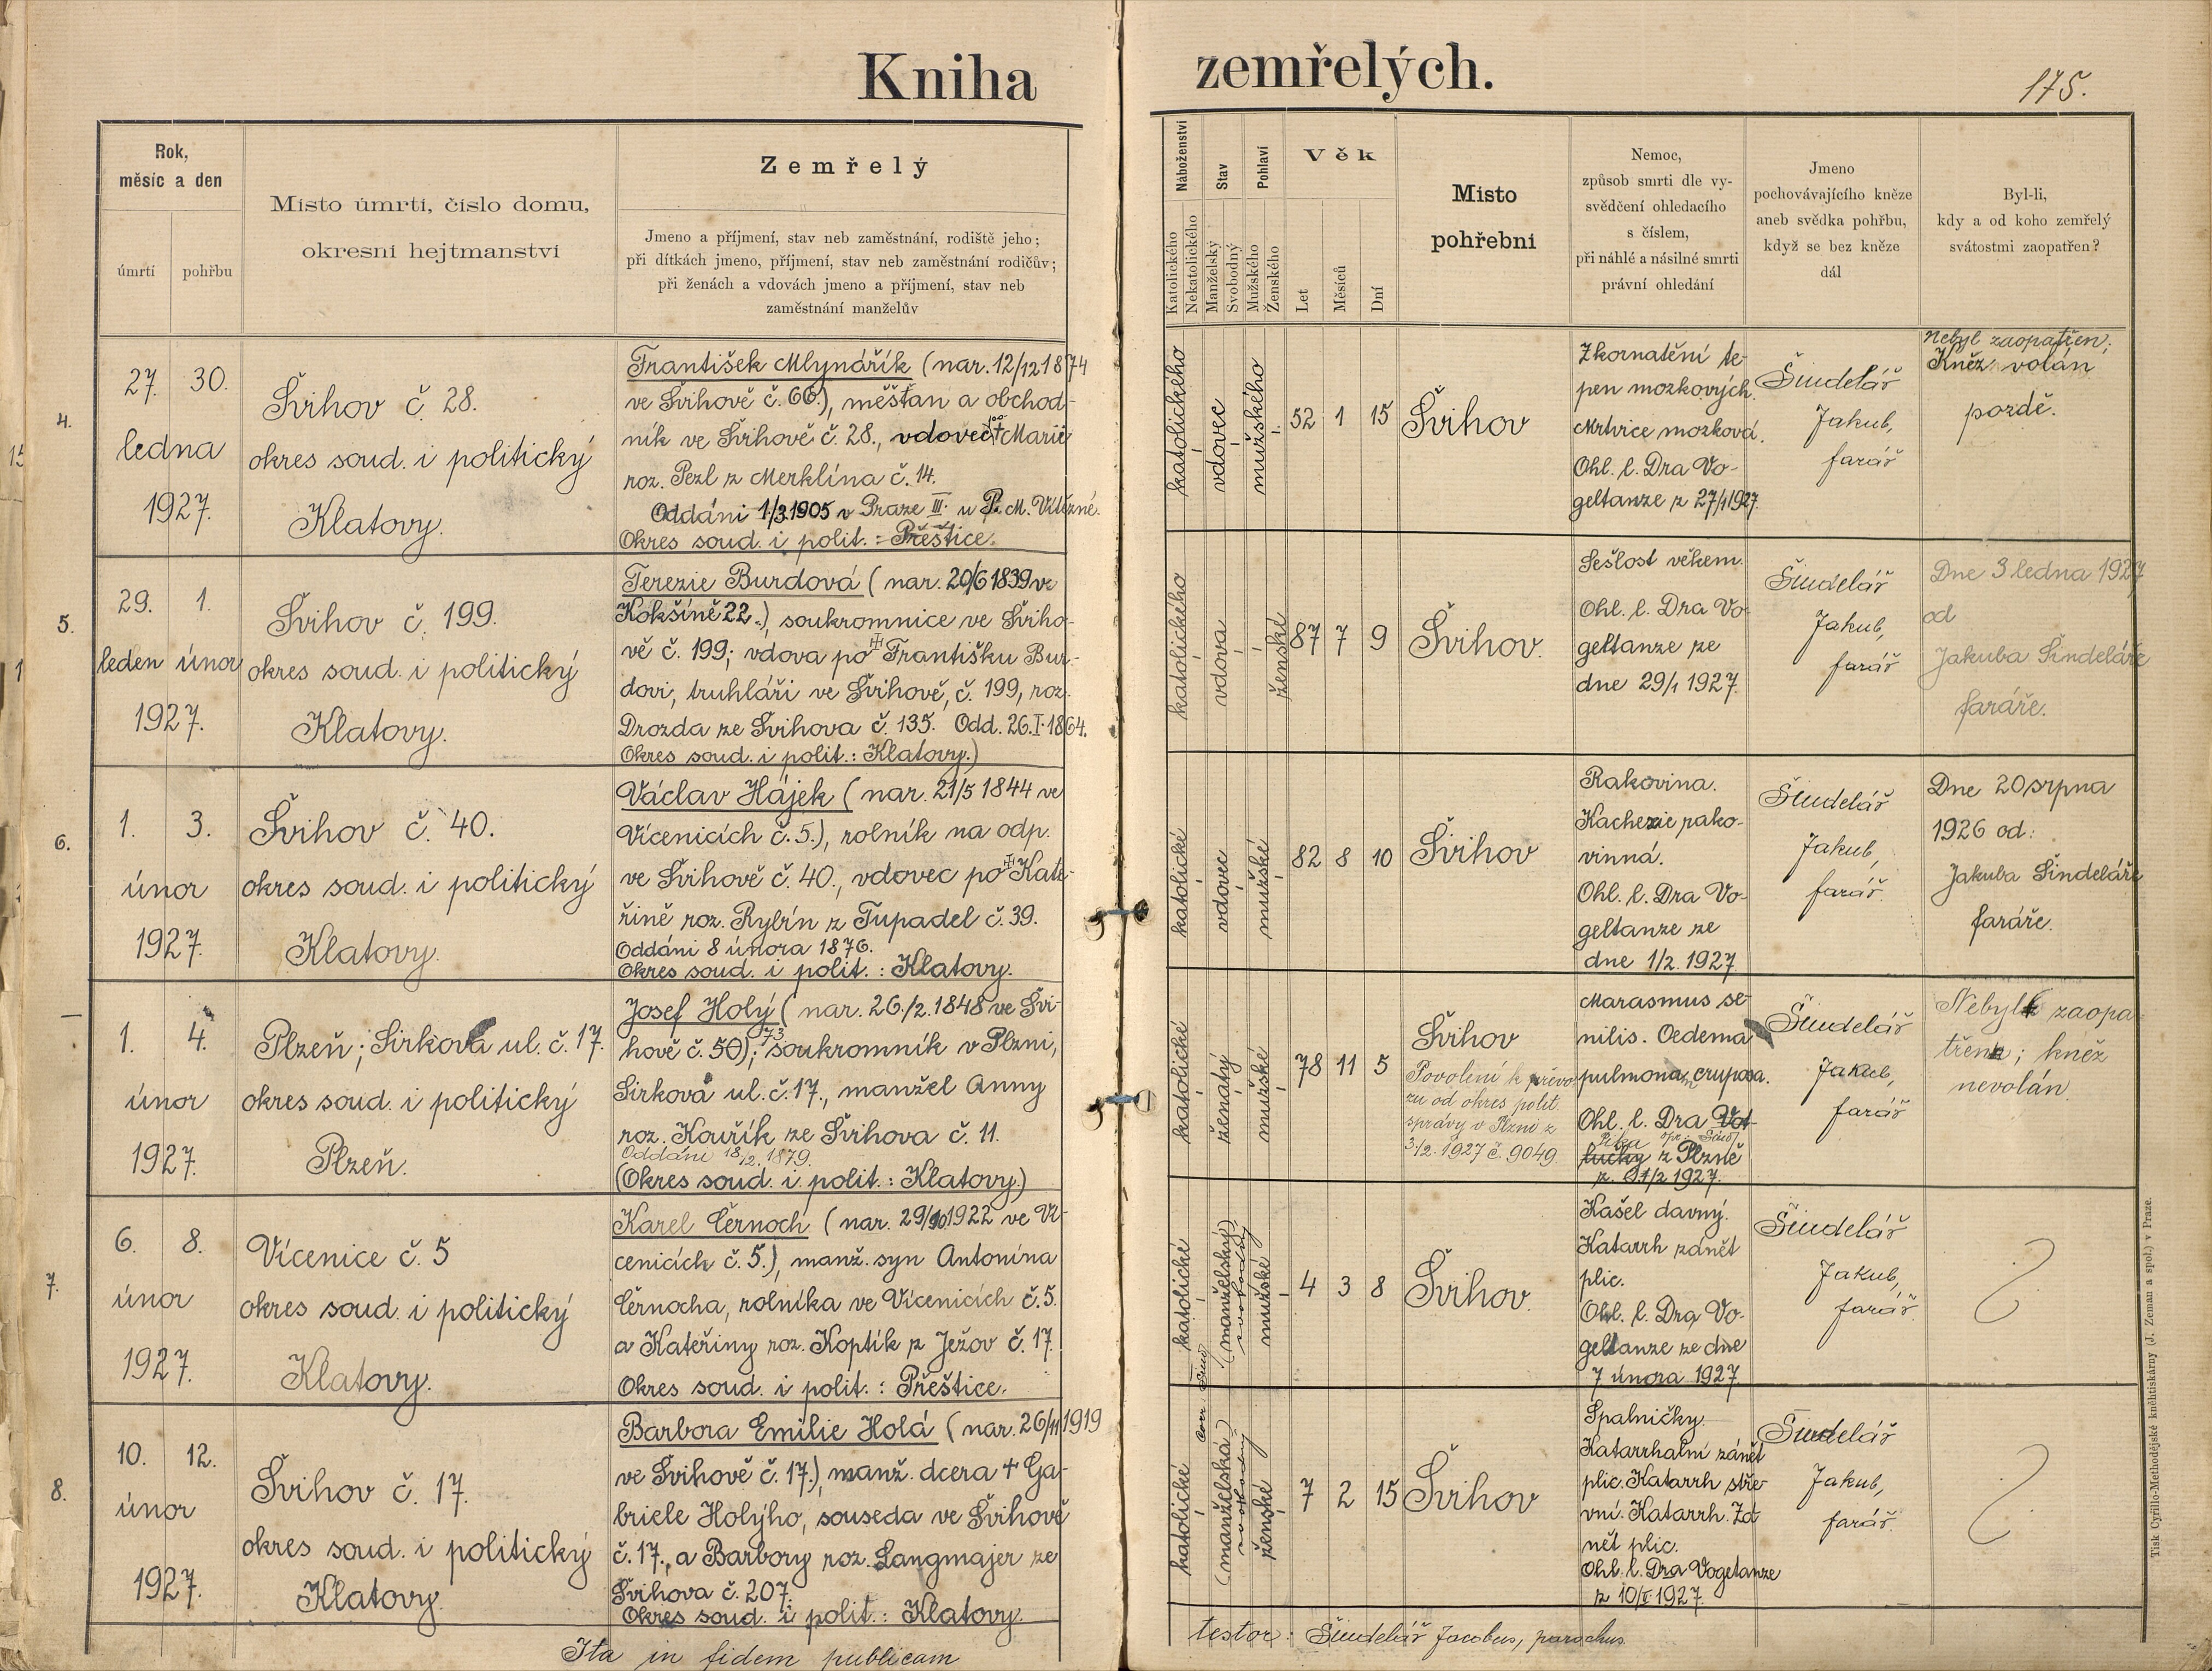 Kniha zemřelých.
175.
Rok,
měsíc a den
úmrtí
pohřbu
Místo úmrtí, číslo domu,
okresní hejtmanství
Zemřelý
Jmeno a příjmení, stav neb zaměstnání, rodiště jeho;
při dítkách jmeno, příjmení, stav neb zaměstnání rodičův;
při ženách a vdovách jmeno a příjmení, stav neb
zaměstnání manželův
Náboženství
Katolického
Nekatolického
Stav
Manželský
Svobodný
Pohlaví
Mužského
Ženského
Věk
Let
Měsíců
Dní
Místo
pohřební
Nemoc,
způsob smrti dle vy-
svědčení ohledacího
s číslem,
při náhlé a násilné smrti
právní ohledání
Jmeno
pochovávajícího kněze
aneb svědka pohřbu,
když se bez kněze
dál
Byl-li,
kdy a od koho zemřelý
svátostmi zaopatřen?
4.
27. 30.
ledna
1927.
Švihov č. 28.
okres soud. i politický
Klatovy.
František Mlynářík (nar. 12/12 1874
ve Švihově č. 66.), měšťan a obchod-
ník ve Švihově č. 28., vdovec po † Marii
roz. Pezl z Merklína č. 14.
Oddáni 1/3 1905 v Praze III. u P. M. Vítězné.
Okres soud. i polit.: Přeštice.
katolického
vdovec
mužského
52 1 15
Švihov
Zkornatění te-
pen mozkových.
Mrtvice mozková.
Ohl. l. Dra Vo-
geltanze z 27/1 1927.
Šindelář
Jakub,
farář
Nebyl zaopatřen;
Kněz volán
pozdě.
5.
29. 1.
leden únor
1927.
Švihov č. 199.
okres soud. i politický
Klatovy.
Terezie Burdová (nar. 20/6 1839 ve
Kokšíně 22.), soukromnice ve Šviho-
vě č. 199; vdova po † Františku Bur-
dovi, truhláři ve Švihově, č. 199, roz.
Drozda ze Švihova č. 135. Odd. 26.I.1864.
Okres soud. i polit.: Klatovy.)
katolického
vdova
ženské
87 7 9
Švihov.
Sešlost věkem.
Ohl. l. Dra Vo-
geltanze ze
dne 29/1 1927.
Šindelář
Jakub,
farář
Dne 3 ledna 1927
od
Jakuba Šindeláře
faráře.
6.
1. 3.
únor
1927.
Švihov č. 40.
okres soud. i politický
Klatovy.
Václav Hájek (nar. 21/5 1844 ve
Vícenicích č. 5.), rolník na odp.
ve Švihově č. 40., vdovec po † Kate-
řině roz. Rybín z Tupadel č. 39.
Oddáni 8 února 1876.
Okres soud. i polit.: Klatovy.
katolické
vdovec
mužské
82 8 10
Švihov
Rakovina.
Kachexie rako-
vinná.
Ohl. l. Dra Vo-
geltanze ze
dne 1/2. 1927
Šindelář
Jakub,
farář.
Dne 20 srpna
1926 od:
Jakuba Šindeláře
faráře.
1. 4.
únor
1927.
Plzeň; Sirkova ul. č. 17.
okres soud. i politický
Plzeň.
Josef Holý (nar. 26./2. 1848 ve Švi-
hově č. 50); 73 soukromník v Plzni,
Sirková ul. č. 17., manžel Anny
roz. Kouřík ze Švihova č. 11.
Oddáni 18/2. 1879.
(Okres soud. i polit.: Klatovy.)
katolické
ženatý
mužské
78 11 5
Švihov
Povolení k převo-
zu od okres polit.
správy v Plzni z
3/2. 1927 č. 9049.
Marasmus se-
nilis. Oedema
pulmonam cruposa.
Ohl. l. Dra
z Plzně
z. 1/2 1927.
Šindelář
Jakub,
farář
Nebyl zaopa-
třen; kněz
nevolán.
7.
6. 8.
únor
1927.
Vícenice č. 5
okres soud. i politický
Klatovy.
Karel Černoch (nar. 29/10 1922 ve Ví-
cenicích č. 5.), manž. syn Antonína
Černocha, rolníka ve Vícenicích č. 5.
a Kateřiny roz. Koptík z Ježov č. 17.
Okres soud. i polit.: Přeštice.
katolické
(manželský)
svobodný
mužské
4 3 8
Švihov.
Kašel davný.
Katarrh zánět
plic.
Ohl. l. Dra Vo-
geltanze ze dne
7 února 1927.
Šindelář
Jakub,
farář.
8.
10. 12.
únor
1927.
Švihov č. 17.
okres soud. i politický
Klatovy.
Barbora Emilie Holá (nar. 26/11 1919
ve Švihově č. 17.), manž. dcera † Ga-
briele Holýho, souseda ve Švihově
č. 17., a Barbory roz. Langmajer ze
Švihova č. 207.
Okres soud. i polit.: Klatovy.
katolické
(manželská)
svobodný
ženské
7 2 15
Švihov
Spalničky.
Katarrhalní zánět
plic. Katarrh stře-
vní. Katarrh. Zá-
nět plic.
Ohl. l. Dra Vogetanze
z 10/II 1927.
Šindelář
Jakub,
farář.
Ita in fidem publicam
testor: Šindelář Jacobus, parochus.
Tisk Cyrillo-Methodějské knihtiskárny (J. Zeman a spol.) v Praze.